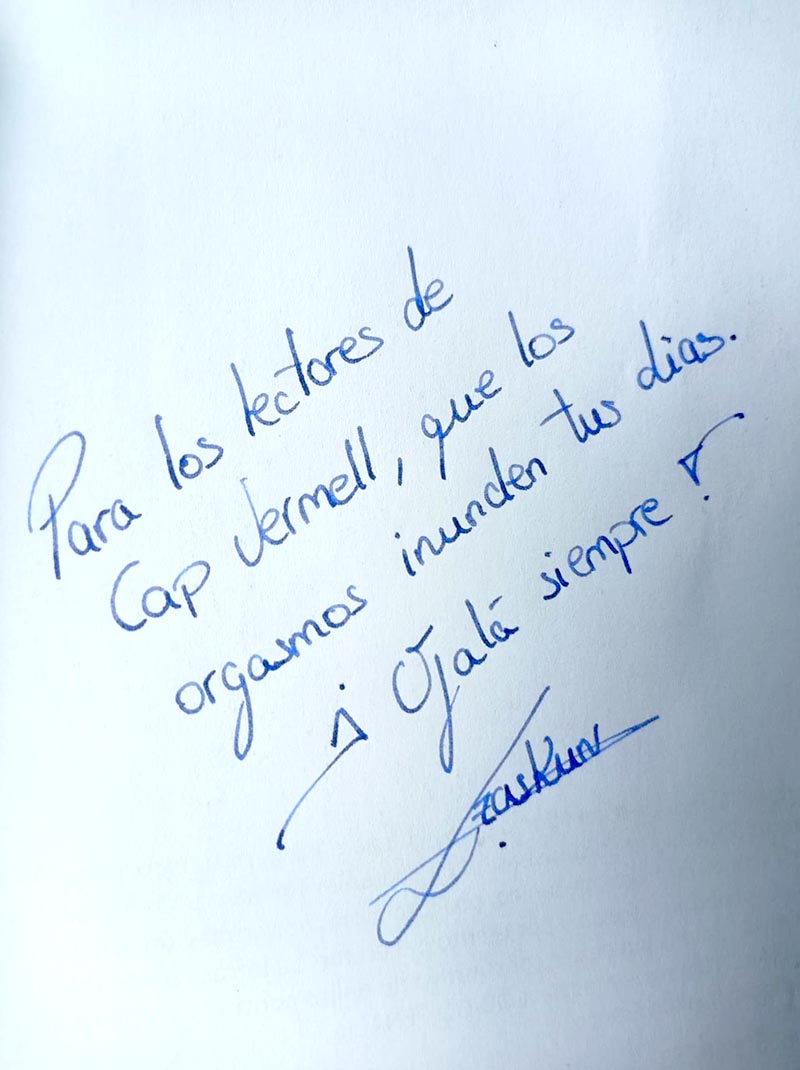 Para los lectores de
Cap Vermell, que los
orgasmos inunden tus dias.
¡Ojalá siempre!
Izaskun